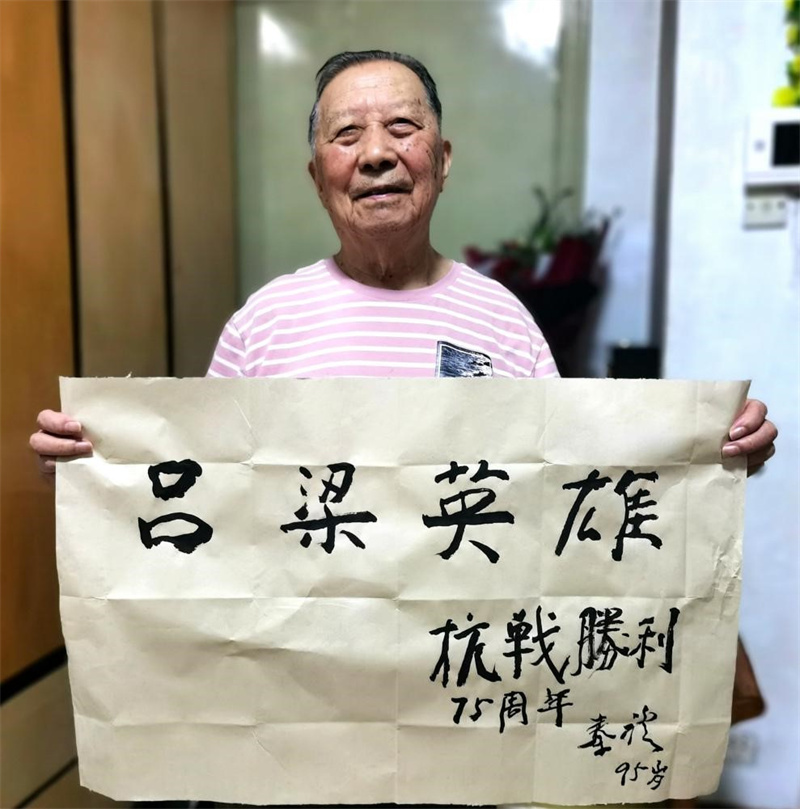 吕梁英雄
抗戰勝利
75周年
秦
95岁